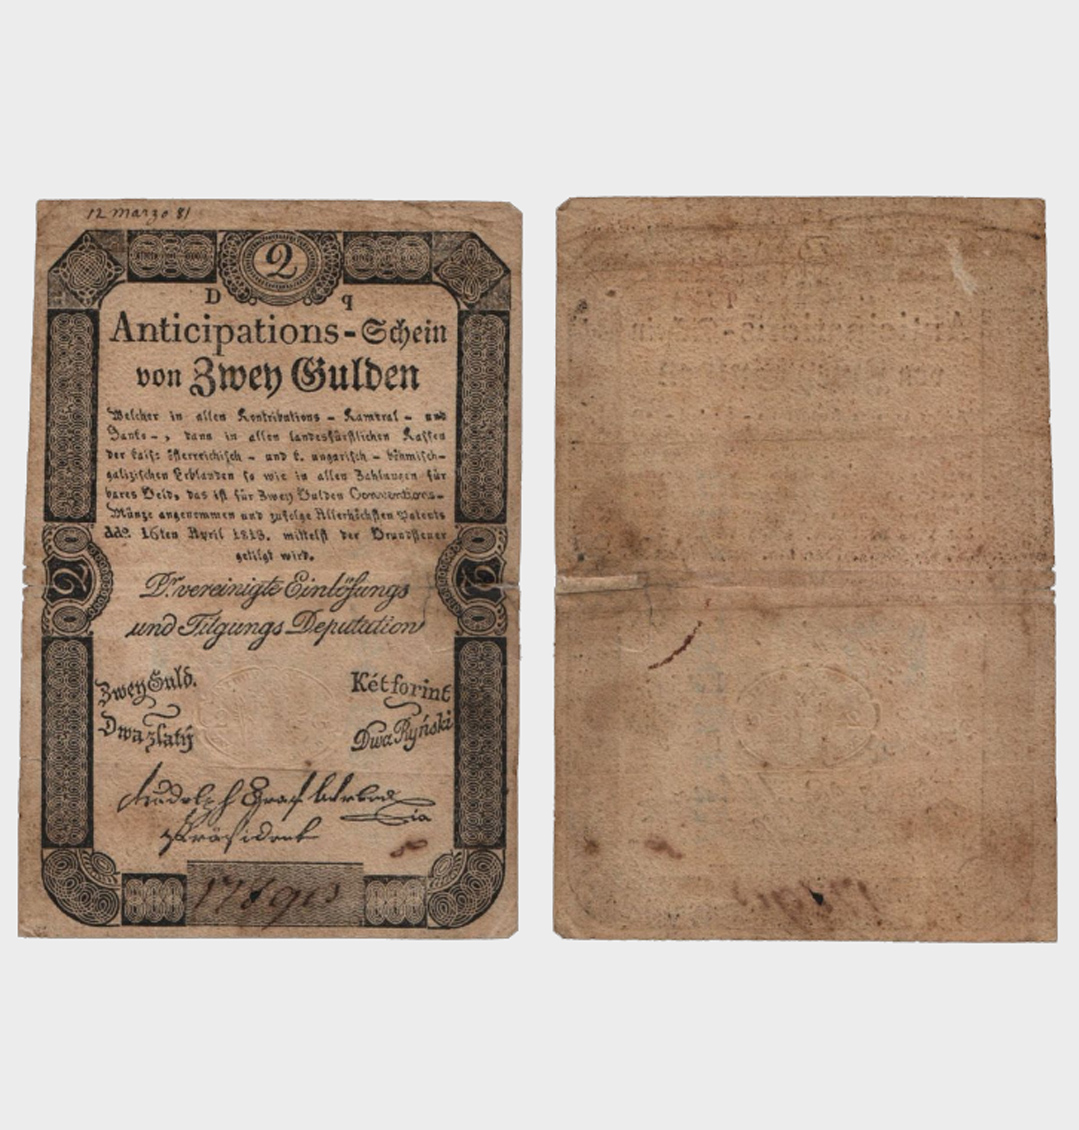 12 marzo 81
2
D q
Anticipations-Schein
von Zwey Gulden
Welcher in allen Kontributions - Kameral - und
Banko-, dann in allen landesfürstlichen Kassen
der kais: österreichisch - und k. ungarisch - böhmisch-
galizischen Erblanden so wie in allen Zahlungen für
bares Geld, das ist für Zwey Gulden Conventions-
Münze angenommen und zufolge Allerhöchsten Patents
ddo. 16ten April 1813. mittelst der Grundsteuer
getilgt wird.
2 2
Dᵉ vereinigte Einlösungs
und Tilgungs Deputation
Zwey Guld. Két forint
Dwa zlatý Dwa Ryński
Rudolph Graf
Präsident